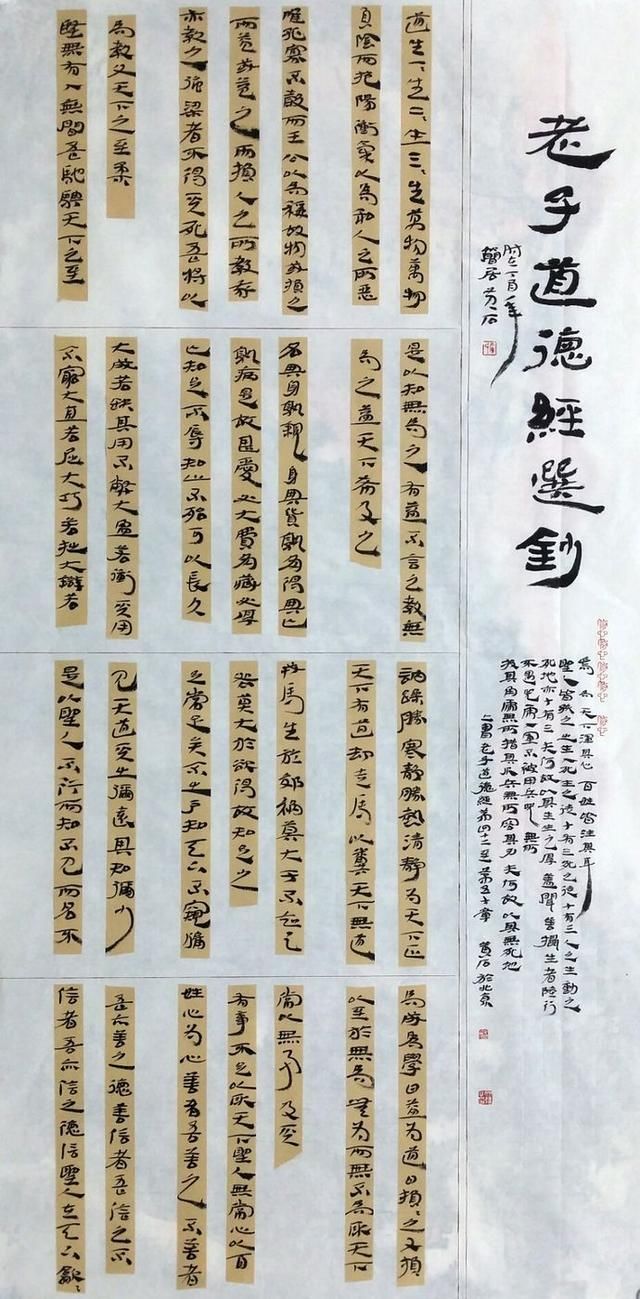 老子道德經選鈔
道生一、生二、生三、生萬物萬物
負陰而抱陽衝氣以為和人之所惡
唯孤寡不穀而王公以為稱故物或損之
而益或益之而損人之所教我
亦教之強梁者不得其死吾將以
為教父天下之至柔
堅無有入無間吾馳騁天下之至
是以知無為之有益不言之教無
為之益天下希及之
名與身孰親身與貨孰多得與亡
孰病是故甚愛必大費多藏必厚
亡知足不辱知止不殆可以長久
大成若缺其用不弊大盈若沖其用
不窮大直若屈大巧若拙大辯若
訥躁勝寒靜勝熱清靜為天下正
天下有道却走馬以糞天下無道
戎馬生於郊禍莫大于不知足
咎莫大於欲得故知足之
足常足矣不出戶知天下不窺牖
見天道其出彌遠其知彌少
是以聖人不行而知不見而名不
為成為學日益為道日損、之又損
以至於無為無為而無不為取天下
常以無事及其
有事不足以取天下聖人無常心以百
姓心為心善者吾善之不善者
吾亦善之德善信者吾信之不
信者吾亦信之德信聖人在天下歙、
焉為天下渾其心百姓皆注其耳
聖人皆孩之出生入死生之徒十有三死之徒十有三人之生動之
死地亦十有三夫何故以其生生之厚蓋聞善攝生者陸行
不遇兕虎入軍不被甲兵兕無所
投其角虎無所措其爪兵無所容其刃夫何故以其無死地
上書老子道德經第四十二至第五十章 黃石於北京